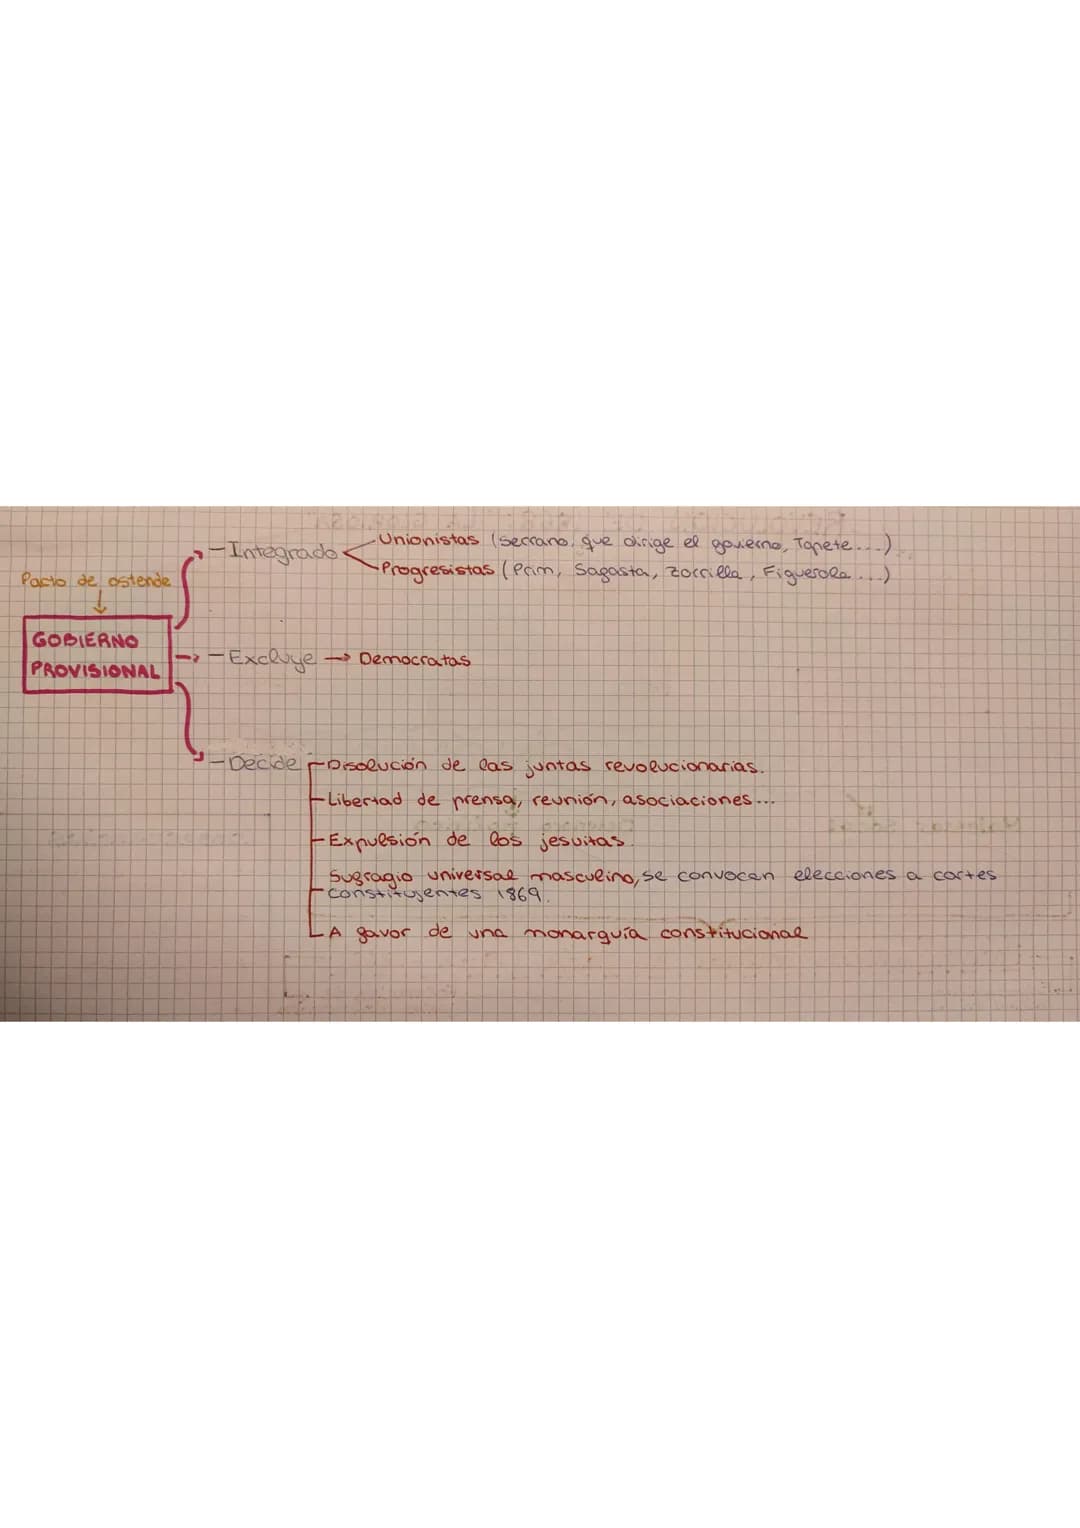 - Integrado
Unionistas (Serrano, que dirige el govierno, Topete...)
Progresistas (Prim, Sagasta, Zorrilla, Figuerola...)
Pacto de ostende
GOBIERNO
PROVISIONAL
- Excluye → Democratas
- Decide
- Disolución de las juntas revolucionarias.
- Libertad de prensa, reunión, asociaciones...
- Expulsión de los jesuitas.
Sufragio universal masculino, se convocan elecciones a cortes
- constituyentes 1869.
- A favor de una monarquía constitucional